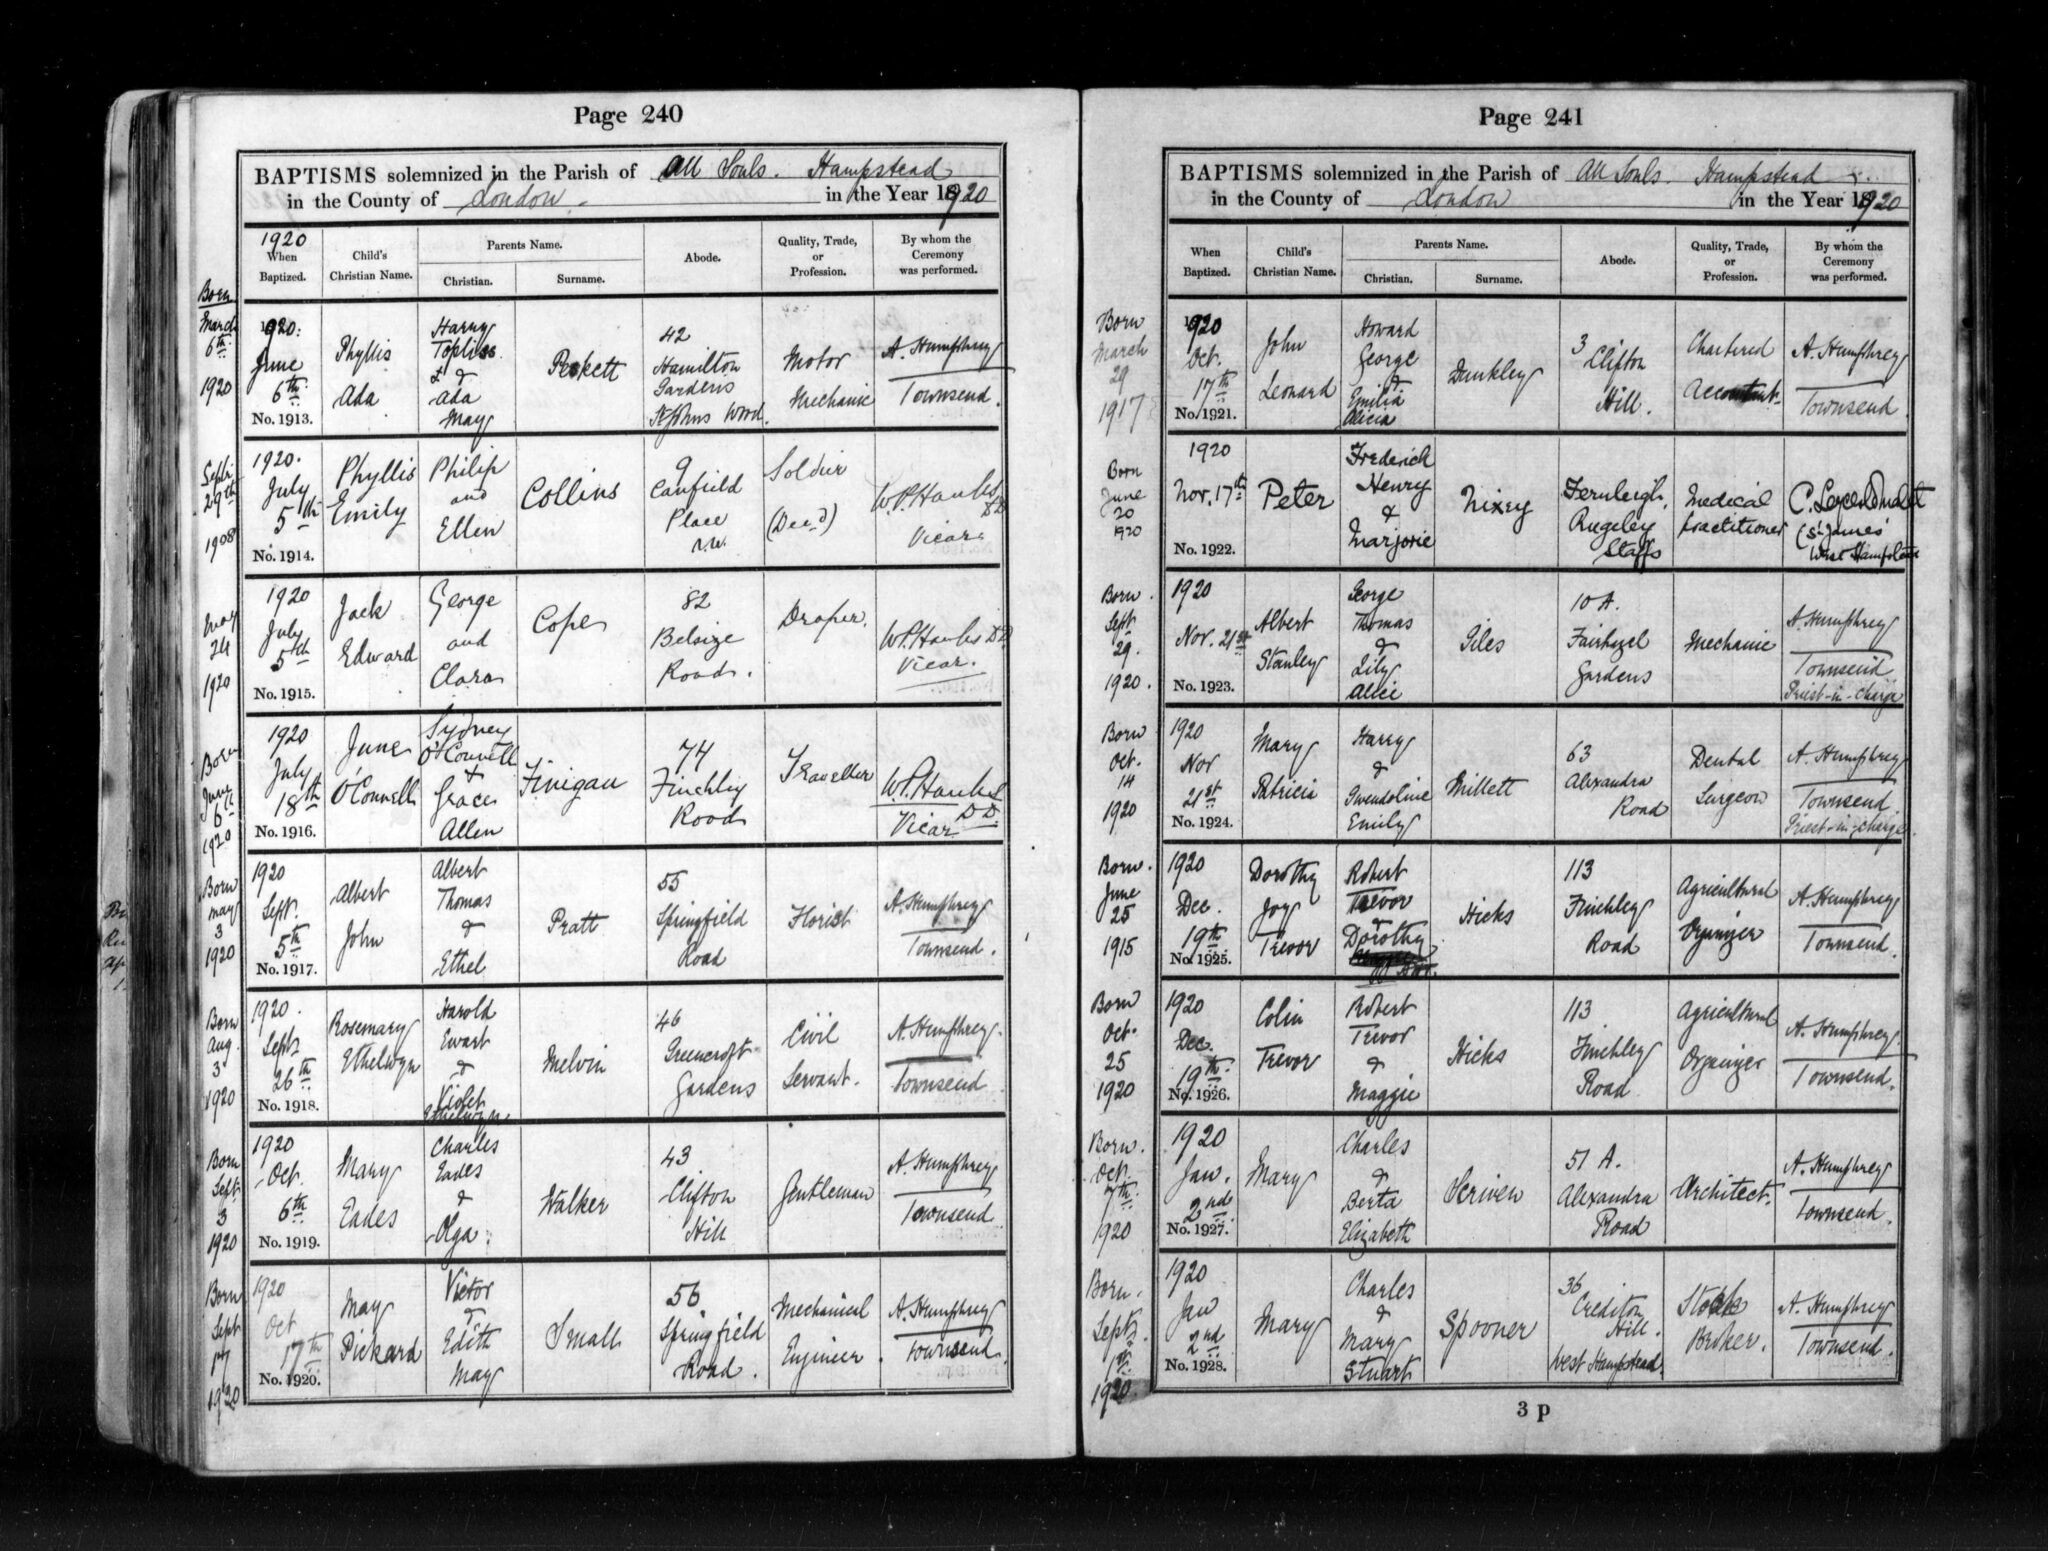 Page 240
BAPTISMS solemnized in the Parish of All Souls. Hampstead
in the County of London. in the Year 1920
1920
When Baptized.
Child's Christian Name.
Parents Name.
Christian.
Surname.
Abode.
Quality, Trade, or Profession.
By whom the Ceremony was performed.
Born March 6th 1920
1920: June 6th
No. 1913.
Phyllis Ada
Harry Topliss & Ada May
Peckett
42 Hamilton Gardens St Johns Wood.
Motor Mechanic
A. Humphrey Townsend.
Sept. 29th 1908
1920. July 5th
No. 1914.
Phyllis Emily
Philip and Ellen
Collins
9 Canfield Place N.W.
Soldier (Decd)
W.P. Hanks DD Vicar
May 24 1920
1920 July 5th
No. 1915.
Jack Edward
George and Clara
Cope
82 Belsize Road.
Draper.
W.P. Hanks DD. Vicar.
Born June 6th 1920
1920 July 18th
No. 1916.
June O'Connell
Sydney O'Connell & Grace Allen
Finigan
74 Finchley Road
Traveller
W.P. Hanks DD. Vicar
Born May 3 1920
1920 Sept. 5th
No. 1917.
Albert John
Albert Thomas & Ethel
Pratt
55 Springfield Road
Florist
A. Humphrey Townsend.
Born Aug. 3 1920
1920. Sept. 26th
No. 1918.
Rosemary Ethelwyn
Harold Ewart & Violet Ethelwyn
Melvin
46 Greencroft Gardens
Civil Servant.
A. Humphrey Townsend
Born Sept 3 1920
1920 Oct. 6th
No. 1919.
Mary Eades
Charles Eades & Olga.
Walker
43 Clifton Hill
Gentleman
A. Humphrey Townsend
Born Sept 17 1920
1920 Oct 17th
No. 1920.
May Pickard
Victor & Edith May
Small
56 Springfield Road.
Mechanical Engineer.
A. Humphrey Townsend.
Page 241
BAPTISMS solemnized in the Parish of All Souls Hampstead
in the County of London in the Year 1920
When Baptized.
Child's Christian Name.
Parents Name.
Christian.
Surname.
Abode.
Quality, Trade, or Profession.
By whom the Ceremony was performed.
Born March 29 1917
1920 Oct. 17th
No. 1921.
John Leonard
Howard George & Emilia Alicia
Dunkley
3 Clifton Hill.
Chartered Accountant.
A. Humphrey Townsend.
Born June 20 1920
1920 Nov. 17th
No. 1922.
Peter
Frederick Henry & Marjorie
Nixey
Fernleigh, Rugeley Staffs
Medical practitioner
(St James' West Hampstead
Born. Sept. 29. 1920.
1920 Nov. 21st
No. 1923.
Albert Stanley
George Thomas & Lily Allie
Giles
10 A. Fairhazel Gardens
Mechanic
A. Humphrey Townsend Priest-in-Charge
Born Oct. 14 1920
1920 Nov 21st
No. 1924.
Mary Patricia
Harry & Gwendoline Emily
Millett
63 Alexandra Road
Dental Surgeon
A. Humphrey Townsend. Priest-in-charge
Born. June 25 1915
1920 Dec. 19th
No. 1925.
Dorothy Joy Trevor
Robert Trevor & Dorothy
Hicks
113 Finchley Road
Agricultural Organizer
A. Humphrey Townsend.
Born Oct. 25 1920
1920 Dec. 19th
No. 1926.
Colin Trevor
Robert Trevor & Maggie
Hicks
113 Finchley Road
Agricultural Organizer
A. Humphrey Townsend.
Born. Oct. 7th 1920
1920 Jan. 2nd
No. 1927.
Mary
Charles & Berta Elizabeth
Scriven
51 A. Alexandra Road
Architect.
A. Humphrey Townsend.
Born. Sept. 1st 1920
1920 Jan 2nd
No. 1928.
Mary
Charles & Mary Stuart
Spooner
36 Crediton Hill. West Hampstead.
Stock Broker.
A. Humphrey Townsend.
3 p